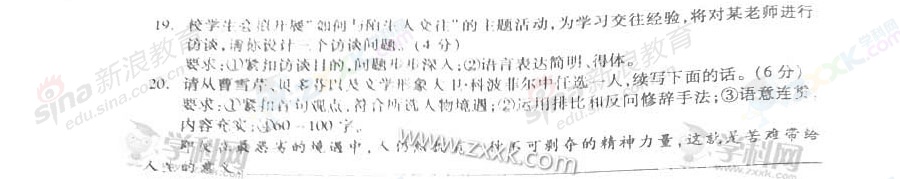 19. 校学生会拟开展“如何与陌生人交往”的主题活动,为学习交往经验,将对某老师进行
访谈,请你设计一个访谈问题。(4分)
要求:①紧扣访谈目的,问题步步深入;②语言表达简明、得体。
20. 请从曹雪芹、贝多芬以及文学形象大卫·科波菲尔中任选一人,续写下面的话。(6分)
要求:①紧扣首句观点,符合所选人物境遇;②运用排比和反问修辞手法;③语意连贯,
内容充实;④60-100字。
即使在最恶劣的境遇中,人仍然 不可剥夺的精神力量,这就是苦难带给
人生的意义。
sina新浪教育
edu.sina.com.cn
学科网
www.zxxk.com